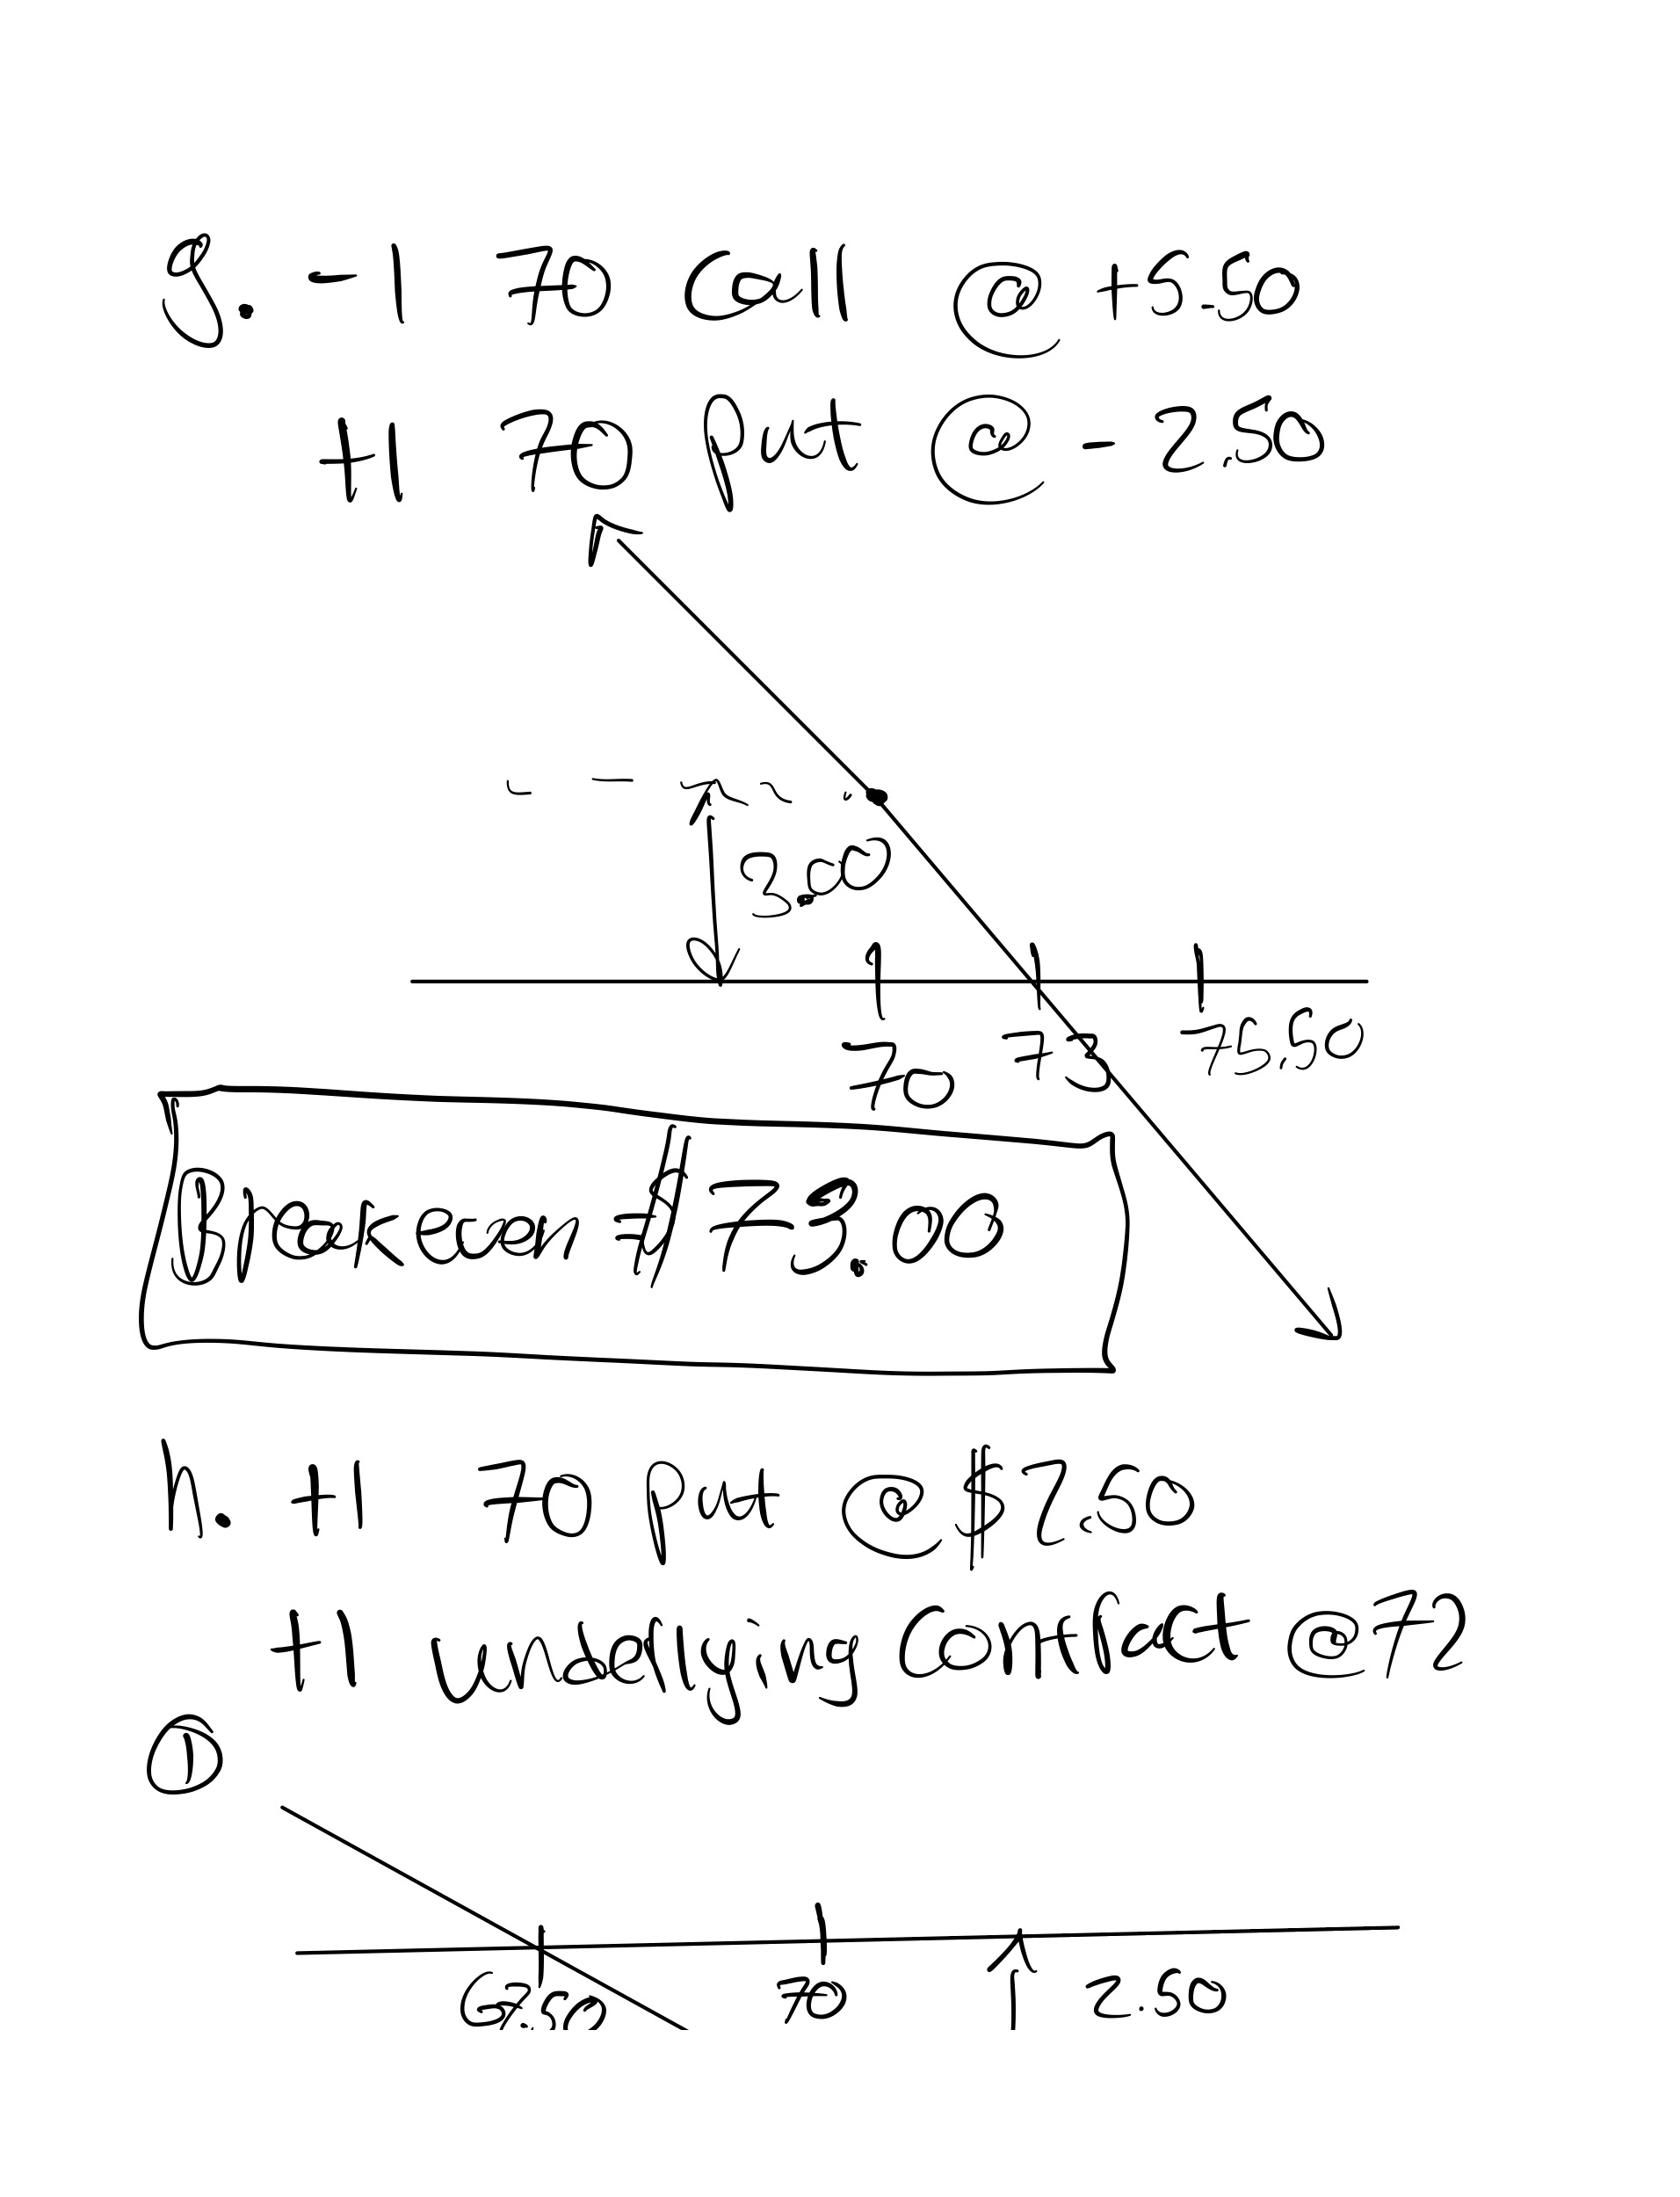 g. -1 70 Call @ +5.50
+1 70 put @ - 2.50
3.00
70 73 75.50
Breakeven $73.00
h. +1 70 put @ $2.50
+1 underlying Contract @72
①
67.50 70 2.50